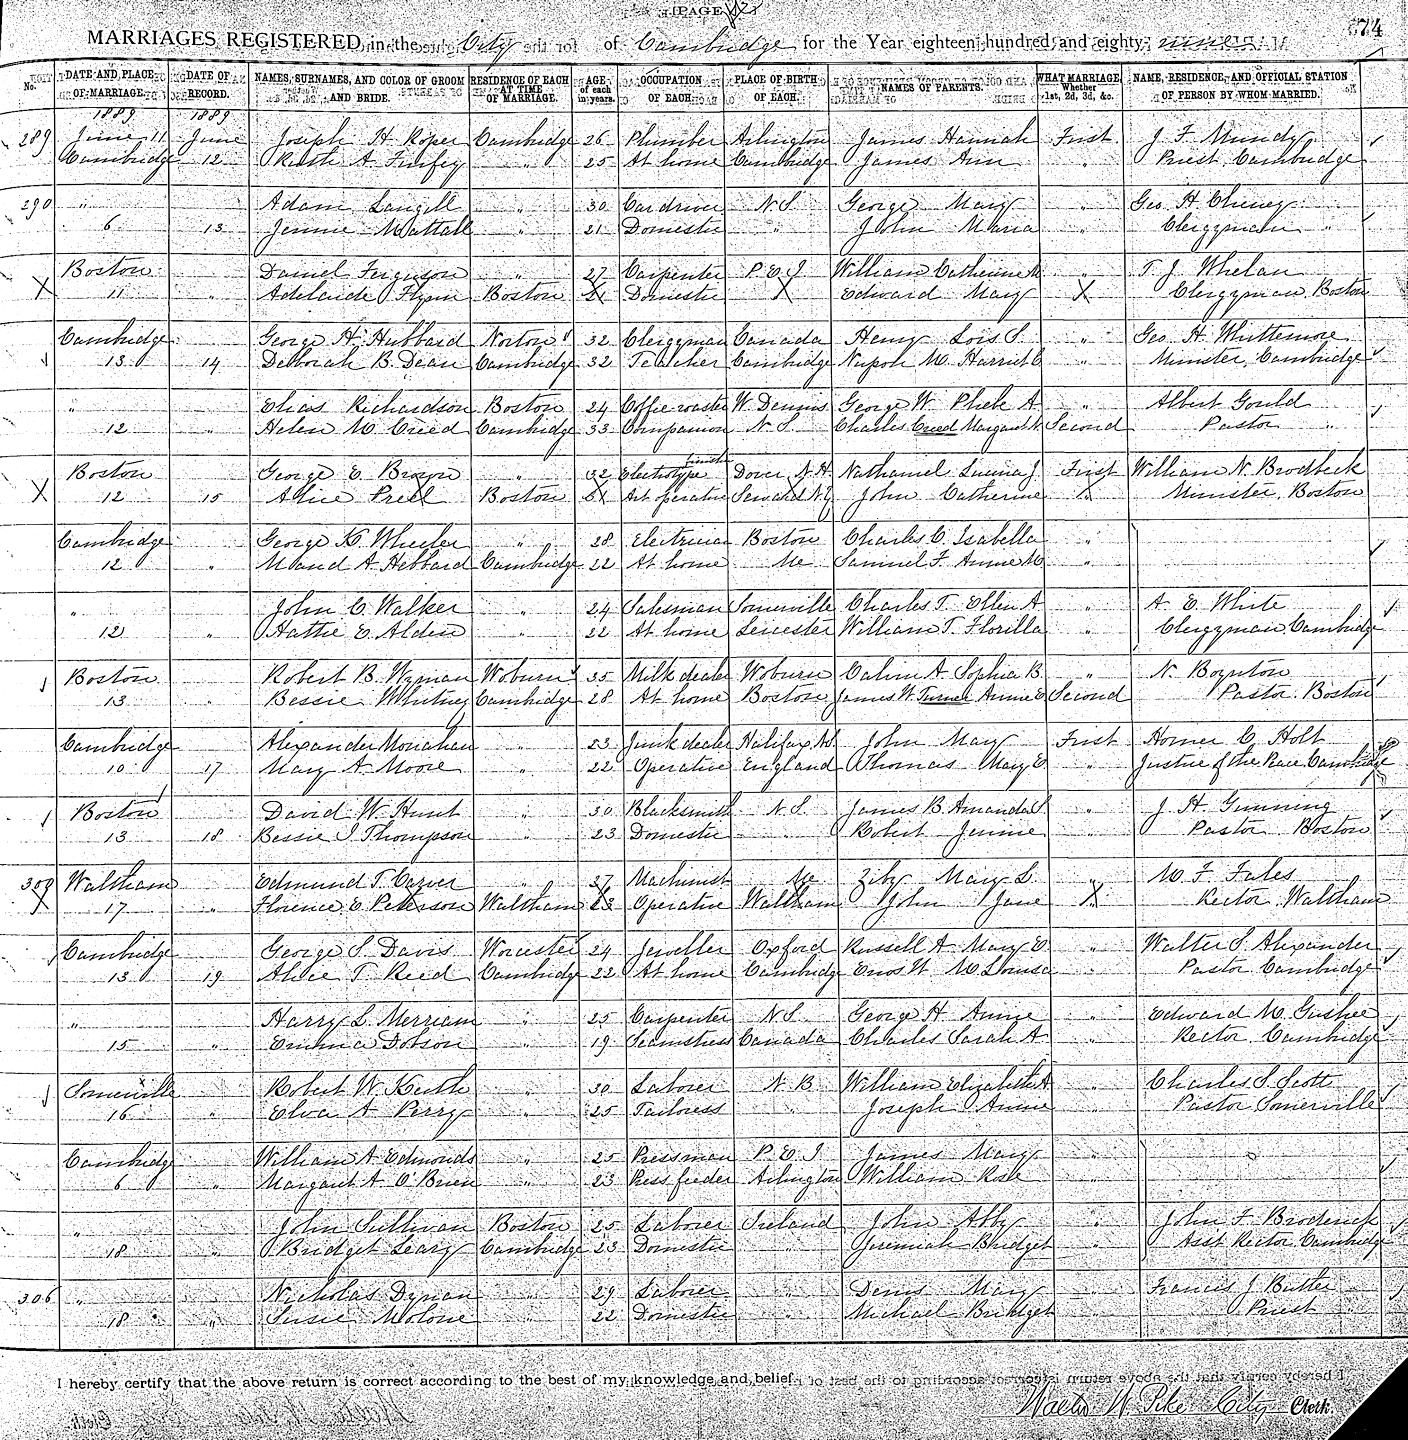 [PAGE
74
MARRIAGES REGISTERED in the City of Cambridge for the Year eighteen hundred and eighty nine
No. DATE AND PLACE OF MARRIAGE. DATE OF RECORD. NAMES, SURNAMES, AND COLOR OF GROOM AND BRIDE. RESIDENCE OF EACH AT TIME OF MARRIAGE. AGE of each in years. OCCUPATION OF EACH. PLACE OF BIRTH OF EACH. NAMES OF PARENTS. WHAT MARRIAGE, Whether 1st, 2d, 3d, &c. NAME, RESIDENCE, AND OFFICIAL STATION OF PERSON BY WHOM MARRIED.
1889 1889
289 June 11 June Joseph H Roper Cambridge 26 Plumber Arlington James Hannah First J F Mundy
Cambridge 12 Ruth A Furfey " 25 At home Cambridge James Ann " Priest Cambridge
290 " Adam Langill " 30 Car driver N S George Mary " Geo H Cheney
6 13 Jennie Mattall " 21 Domestic " John Maria " Clergyman "
Boston Daniel Ferguson " 27 Carpenter P E I William Catherine M " T J Whelan
X 11 " Adelaide Flynn Boston Domestic X Edward Mary X Clergyman Boston
Cambridge George H Hubbard Norton 32 Clergyman Canada Henry Lois S. " Geo H Whittemore
13 14 Deborah B Dean Cambridge 32 Teacher Cambridge Harriet " Minister, Cambridge
" Elias Richardson Boston 24 Coffee roaster W. Dennis George W Phebe A " Albert Gould
12 " Helen M Creed Cambridge 33 Companion N S Charles Creed Margaret Second Pastor "
Boston George E Brown " 32 Electrotype finisher Dover N.H. Nathaniel J. First William N. Brodbeck
X 12 15 Alice Boston Art operative John Catherine " Minister, Boston
Cambridge George K Wheeler " 28 Electrician Boston Charles C Isabella "
12 " Maud A Hebbard Cambridge 22 At home Me Samuel F Annie M "
" John C Walker " 24 Salesman Somerville Charles T Ellen A " A E White
12 " Hattie E Alden " 22 At home Leicester William T. Florilla " Clergyman, Cambridge
Boston Robert B. Wyman Woburn 35 Milk dealer Woburn Calvin A Sophia B " N. Boynton
13 " Bessie Whitney Cambridge 28 At home Boston James W. Turner Annie E Second Pastor Boston
Cambridge Alexander Monahan " 23 Junk dealer Halifax N.S. John Mary First Homer C Holt
10 17 Mary A Moore " 22 Operative England Thomas Mary E " Justice of the Peace Cambridge
Boston David W Hunt " 30 Blacksmith N S James B Amanda S " J H Gunning
13 18 Bessie J Thompson " 23 Domestic " Robert Jennie " Pastor Boston
300 Waltham Edmund T. Carver " 27 Machinist Me Mary L. " M F Fales
X 17 " Florence E Peterson Waltham 23 Operative Waltham John Jane X Rector Waltham
Cambridge George S Davis Worcester 24 Jeweller Oxford Russell A Mary E " Walter S. Alexander
13 19 Alice T Reed Cambridge 22 At home Cambridge Enos W M Louisa " Pastor Cambridge
" Harry L Merriam " 25 Carpenter N S George H Annie " Edward M. Gushee
15 " Emma Dobson " 19 Seamstress Canada Charles Sarah A " Rector Cambridge
Somerville Robert W Keith " 30 Laborer N B William Elizabeth A " Charles S. Scott
16 " Elva A Perry " 25 Tailoress " Joseph Annie " Pastor Somerville
Cambridge William A Edmonds " 25 Pressman P E I James Mary "
6 " Margaret A O'Brien " 23 Press feeder Arlington William Rose "
" John Sullivan Boston 25 Laborer Ireland John Abby " John F Broderick
18 " Bridget Leary Cambridge 23 Domestic " Jeremiah Bridget " Asst Rector Cambridge
306 " Nicholas " 29 Laborer " Denis Mary " Francis J Butler
18 " Susie Molone " 22 Domestic " Michael Bridget " Priest "
I hereby certify that the above return is correct according to the best of my knowledge and belief.
Walter W Pike City Clerk.